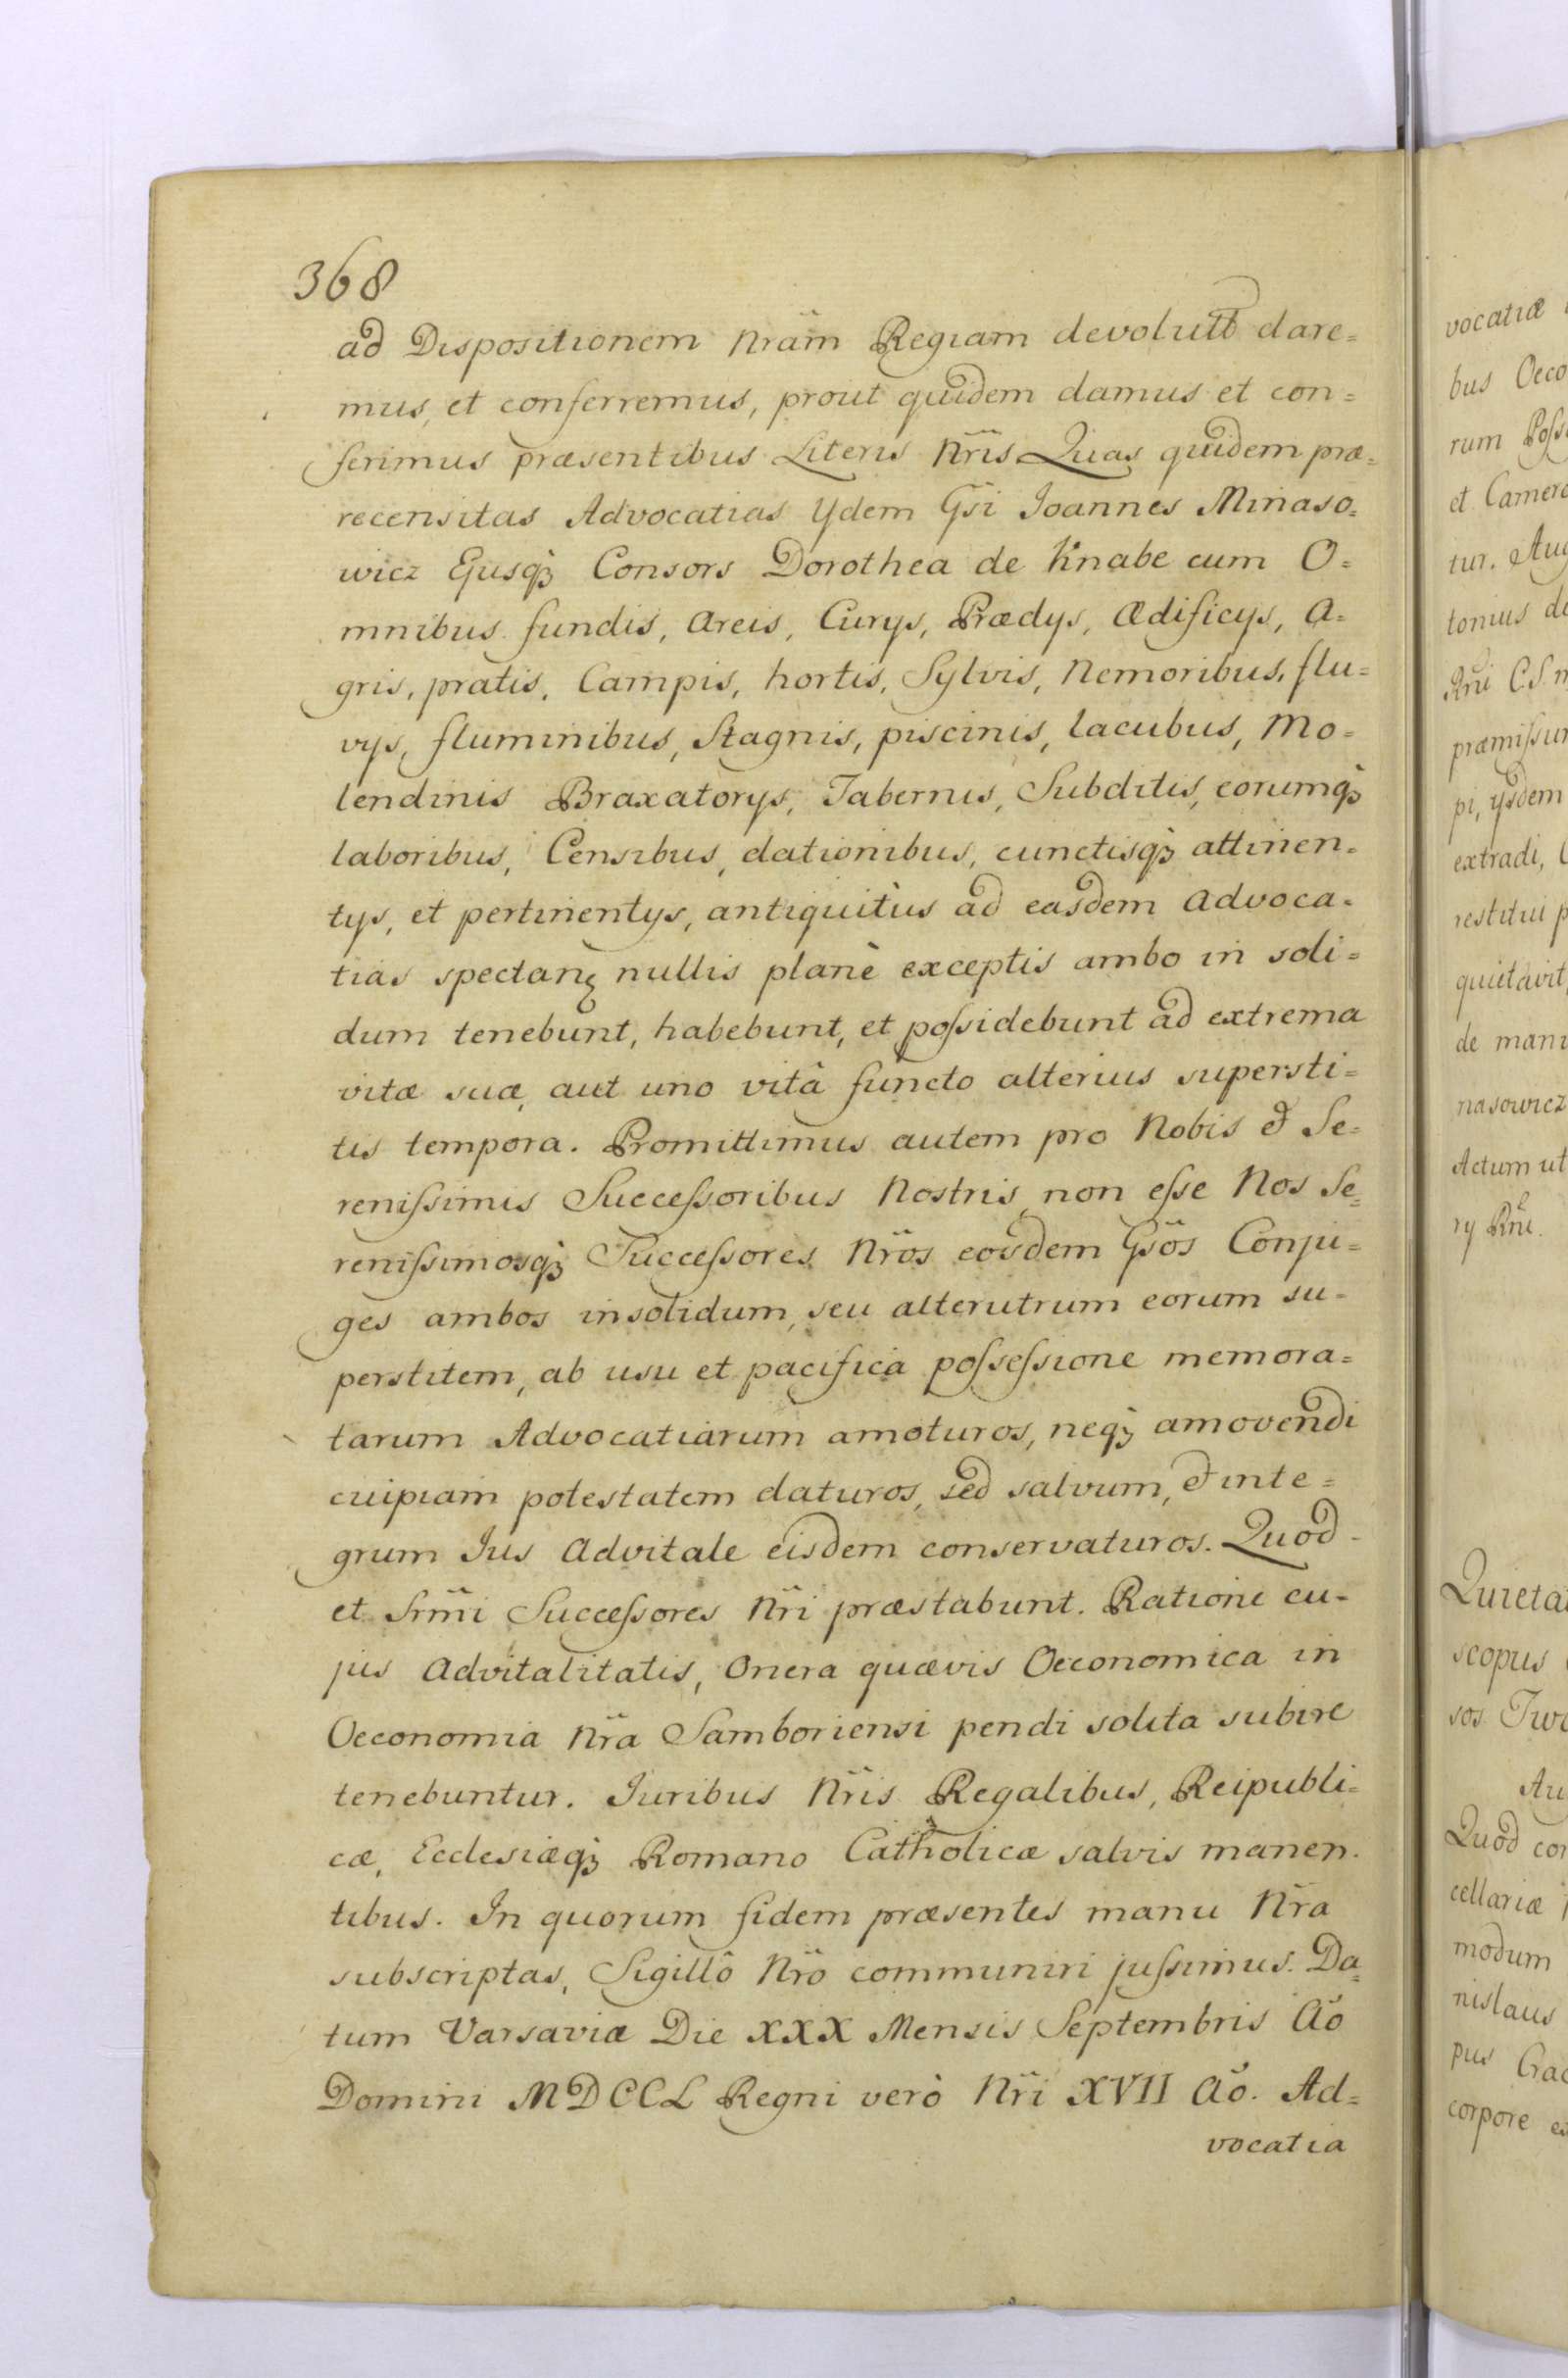 368
ad Dispositionem Nrãm Regiam devolutt dare=
mus, et conferremus, prout quidem damus et con=
ferimus præsentibus Literis Nrĩs Quas quidem præ=
recensitas Advocatias Ydem Gsi Joannes Minaso=
wicz Ejusq̀ꝫ Consors Dorothea de Knabe cum O=
mnibus fundis, Areis, Curys, Prædys, Ædificys, A=
gris, pratis, Campis, hortis, Sylvis, Nemoribus, flu=
vys, fluminibus, Stagnis, piscinis, lacubus, Mo=
lendinis Braxatorys, Tabernis, Subditis, eorumq̀ꝫ
laboribus, Censibus, dationibus, cunctisq̀ꝫ attinen=
tys, et pertinentys, antiquitùs ad easdem Advoca=
tias spectanꝫ nullis planè exceptis ambo in soli=
dum tenebunt, habebunt, et poſsidebunt ad extrema
vitæ suæ, aut uno vitâ functo alterius supersti=
tis tempora. Promittimus autem pro Nobis & Se=
reniſsimis Succeſsoribus Nostris, non eſse Nos Se=
reniſsimosq̀ꝫ Succeſsores Nrõs eosdem Gsõs Conju=
ges ambos insolidum, seu alterutrum eorum su=
perstitem, ab usu et pacifica poſseſsione memora=
tarum Advocatiarum amoturos, neq̀ꝫ amovendi
cuipiam potestatem daturos, sed salvum, & inte=
grum Jus Advitale eisdem conservaturos. Quod
et Srmĩ Succeſsores Nrĩ præstabunt. Ratione cu=
jus Advitalitatis, Onera quævis Oeconomica in
Oeconomia Nrã Samboriensi pendi solita subire
tenebuntur. Juribus Nrĩs Regalibus, Reipubli=
cæ, Ecclesiæq̀ꝫ Romano Catholicæ salvis manen=
tibus. In quorum fidem præsentes manu Nrã
subscriptas, Sigillô Nrõ communiri juſsimus. Da=
tum Varsaviæ Die XXX Mensis Septembris Aõ
Domini MDCCL Regni verò Nrĩ XVII Aõ. Ad=
vocatia
vocatiæ
bus Oeco
rum Poſs
et Camera
tur. Aug
tonius de
Rnĩ C.S.
præmiſsu
pi, ysdem
extradi,
restitui p
quietavit
de man
nasowicz
Actum ut
ry Rnĩ.
Quieta
scopus
sos Two
Au
Quod co
cellariæ
modum
nislaus
pus Crac
corpore